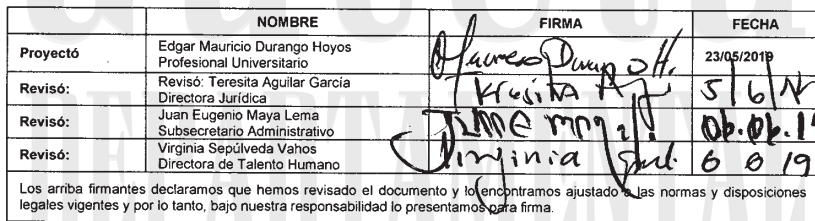 NOMBRE FIRMA FECHA
Proyectó Edgar Mauricio Durango Hoyos
Profesional Universitario Mauricio Durango H. 23/05/2019
Revisó: Revisó: Teresita Aguilar García
Directora Jurídica Teresita 5/6/
Revisó: Juan Eugenio Maya Lema
Subsecretario Administrativo 06.06.1
Revisó: Virginia Sepúlveda Vahos
Directora de Talento Humano Virginia 6 6 19
Los arriba firmantes declaramos que hemos revisado el documento y lo encontramos ajustado a las normas y disposiciones
legales vigentes y por lo tanto, bajo nuestra responsabilidad lo presentamos para firma.